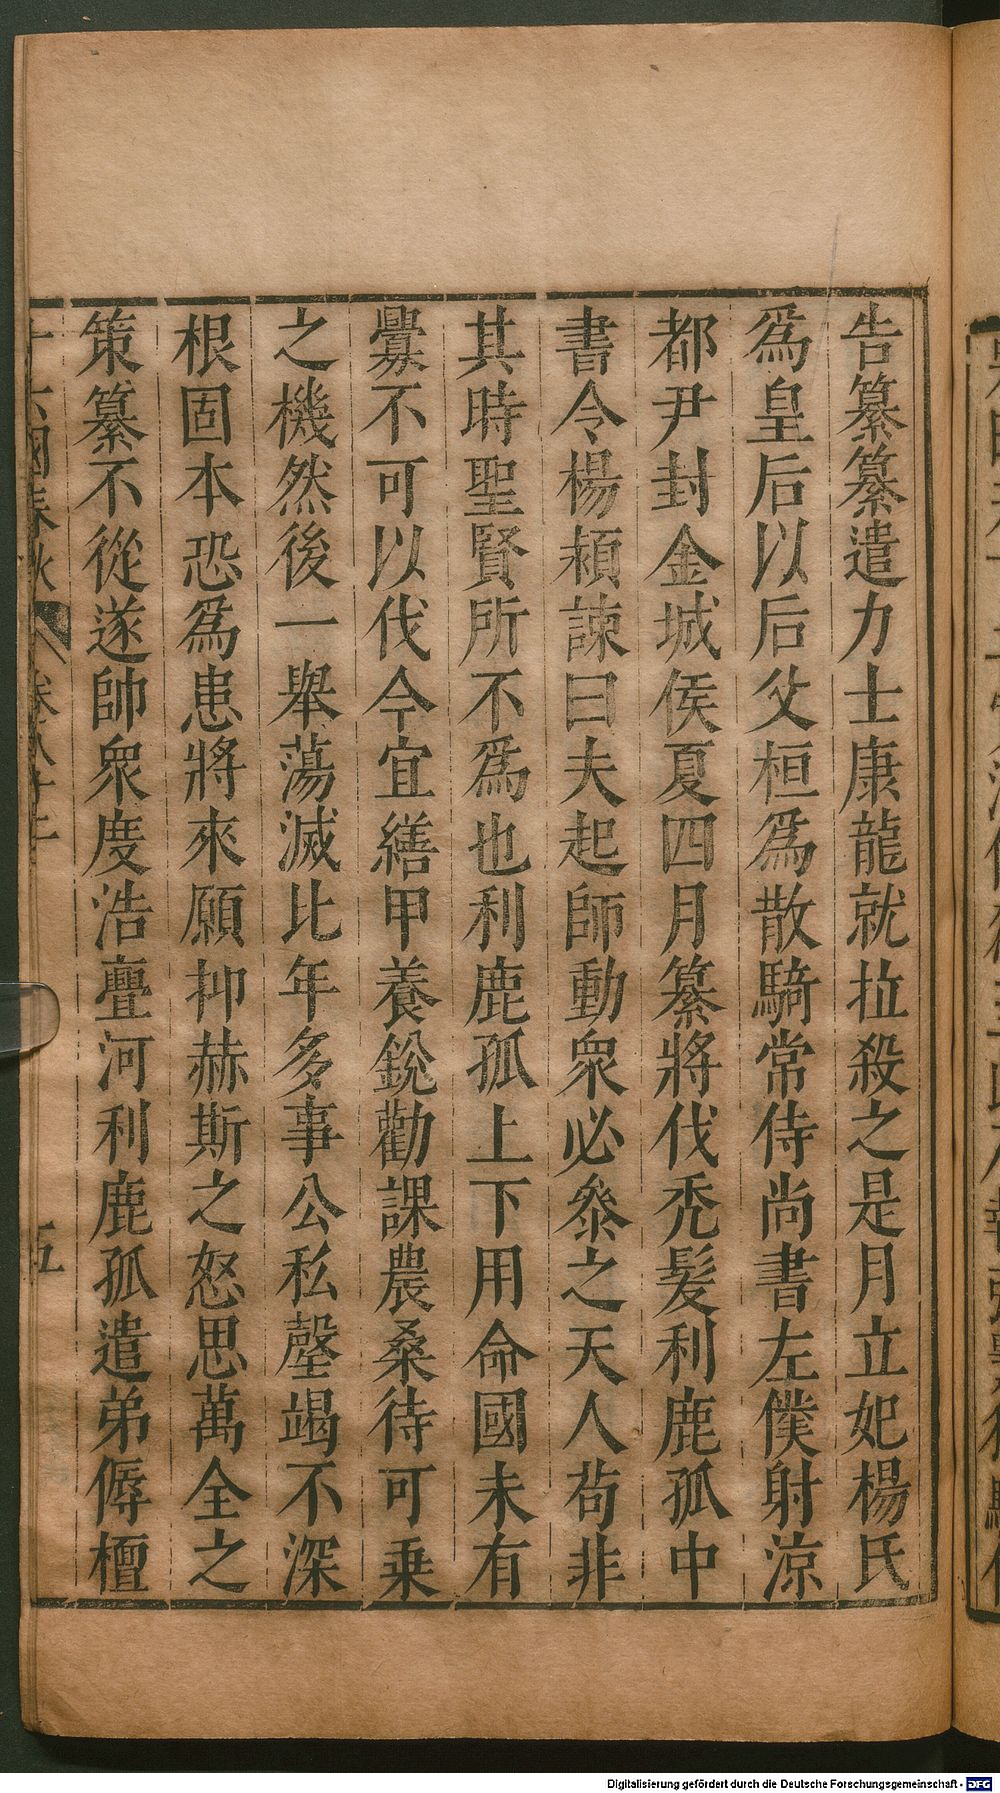 告纂纂遣力士康龍就拉殺之是月立妃楊氏
爲皇后以后父桓爲散騎常侍尚書左僕射涼
都尹封金城侯夏四月纂將伐禿髮利鹿孤中
書令楊熲諫曰夫起師動衆必叅之天人茍非
其時聖賢所不爲也利鹿孤上下用命國未有
釁不可以伐今宜繕甲養銳勸課農桑待可乗
之機然後一舉蕩滅比年多事公私罄竭不深
根固本恐爲患將來願抑赫斯之怒思萬全之
策纂不從遂師衆度浩亹河利鹿孤遣弟傉檀
十六國春秋 卷八十二 五
Digitalisierung gefördert durch die Deutsche Forschungsgemeinschaft - DFG